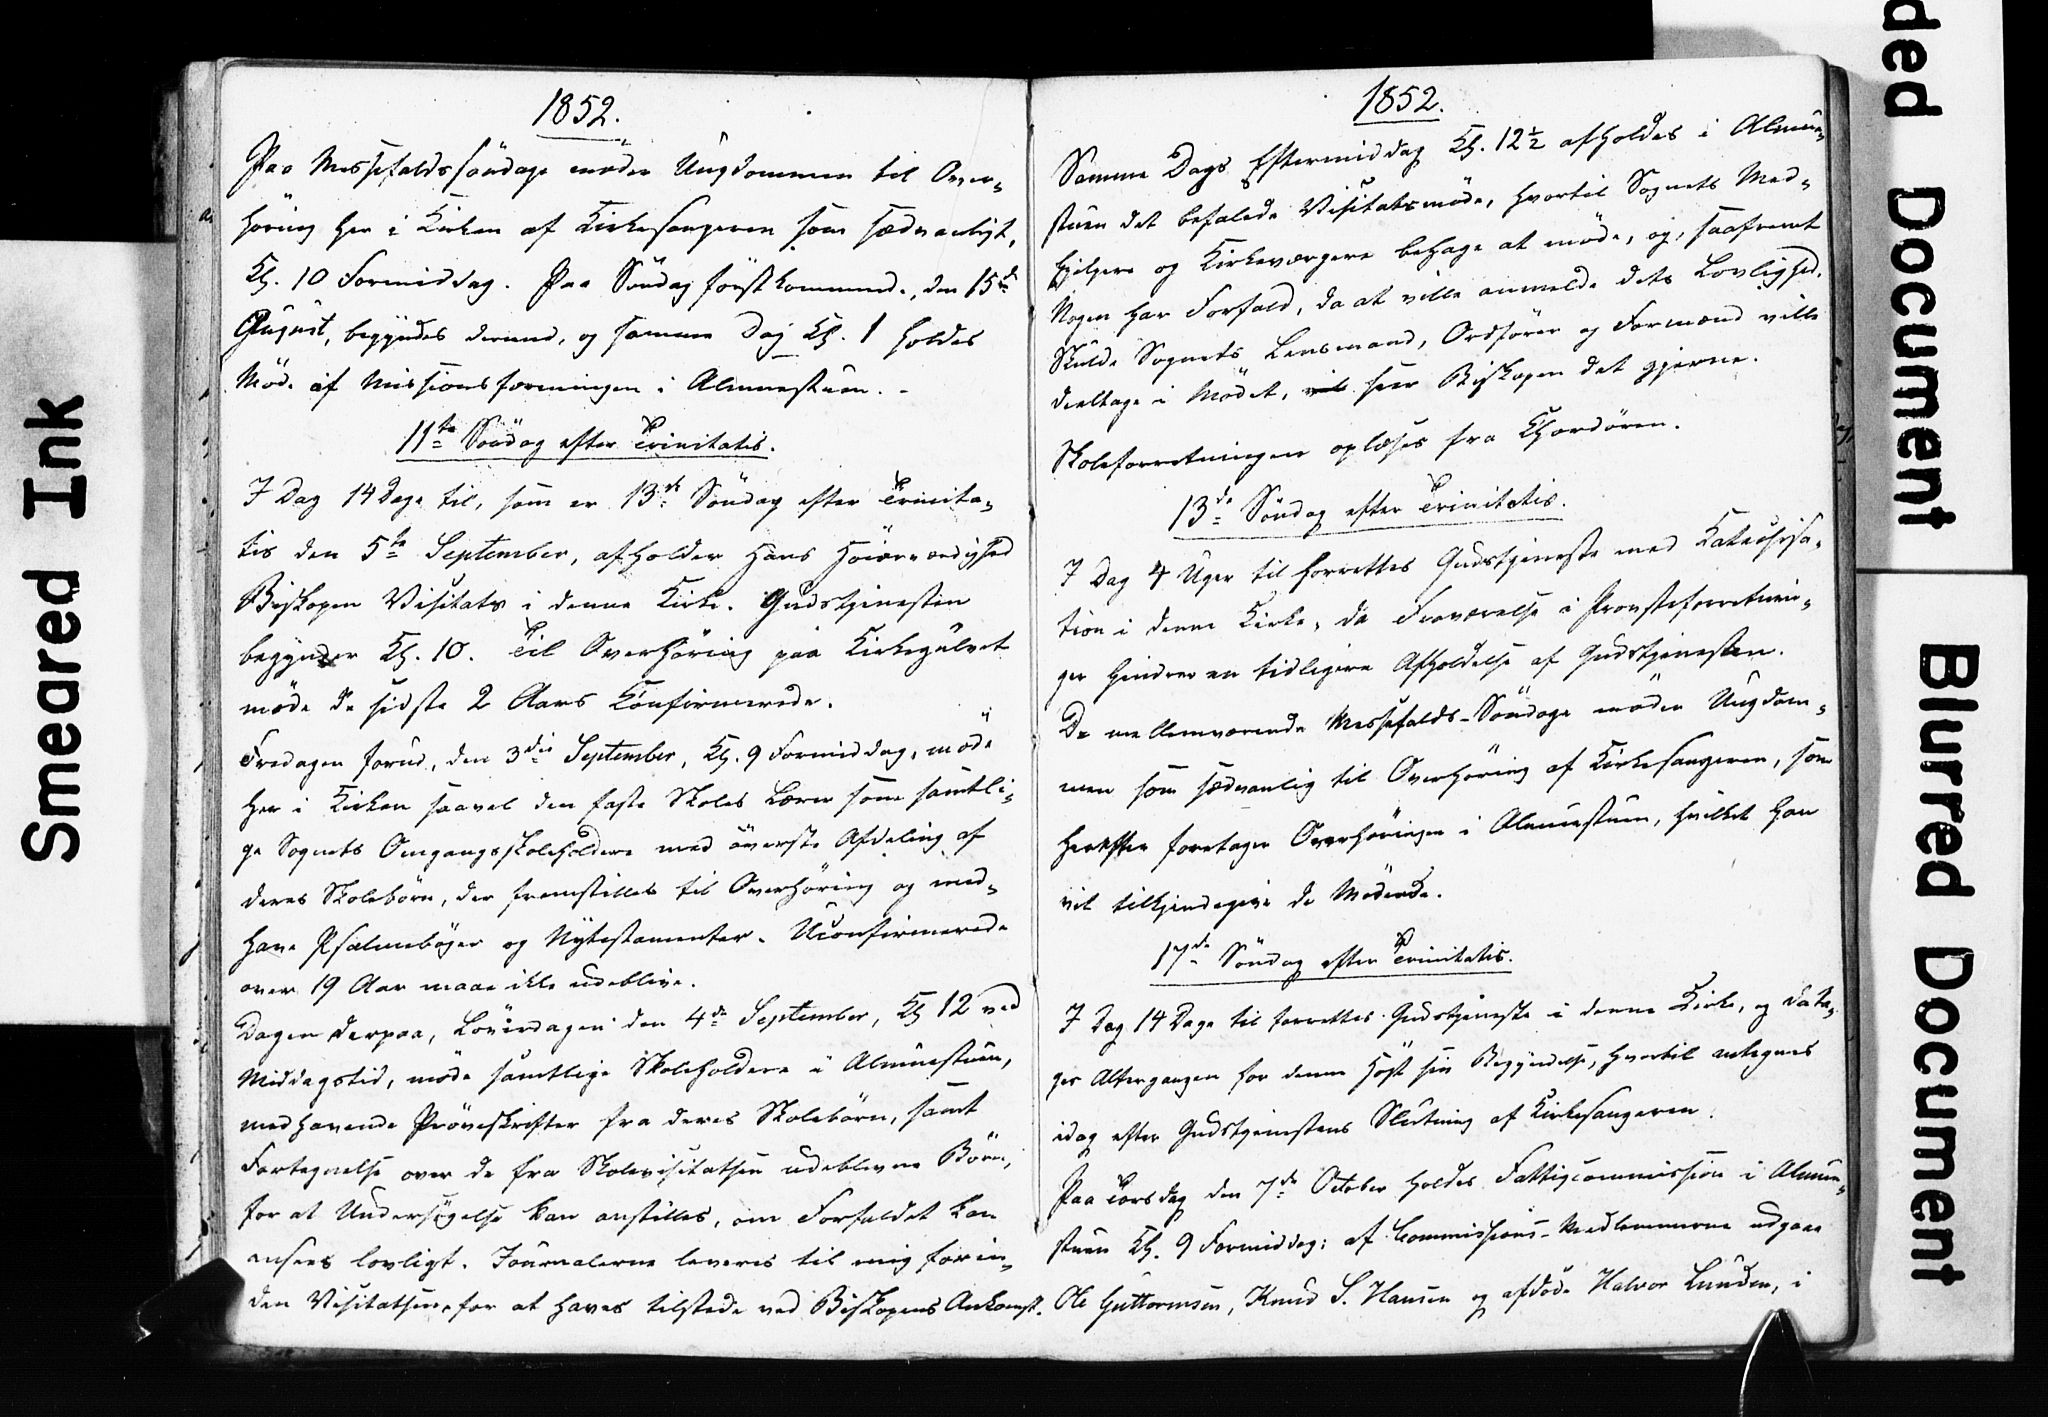 1852.
Paa Messefaldssøndage møder Ungdommen til Over-
høring her i Kirken af Kirkesangeren som sædvanligt,
Kl. 10 Formiddag. Paa Søndag førstkommend., den 15de
August, begyndes dermed, og samme Dag Kl. 1 holdes
Møde af Missionsforeningen i Almuestuen. -
11te Søndag efter Trinitatis.
I Dag 14 Dage til, som er 13de Søndag efter Trinita-
tis den 5te September, afholder Hans Høiærværdighed
Biskopen Visitats i denne Kirke. Gudstjenesten
begynder Kl. 10. Til Overhøring paa Kirkegulvet
møde de sidste 2 Aars Confirmerede.
Fredagen forud, den 3die September, Kl. 9 Formiddag, møde
her i Kirken saavel den faste Skoles Lærer som samtli-
ge Sognets Omgangsskoleholdere med øverste Afdeling af
deres Skolebørn, der fremstilles til Overhøring og med-
have Psalmebøger og Nytestamenter. Uconfirmerede
over 19 Aar maae ikke udeblive.
Dagen derpaa, Løverdagen den 4de September, Kl 12 ved
Middagstid, møde samtlige Skoleholdere i Almuestuen,
medhavende Prøveskrifter fra deres Skolebørn, samt
Fortegnelse over de fra Skolevisitatsen udeblevne Børn,
for at Undersøgelse kan anstilles, om Forfaldet kan
ansees lovligt. Journalerne leveres til mig forin-
den Visitatsen, for at haves tilstede ved Biskopens Ankomst.
1852.
Samme Dags Eftermiddag Kl. 12½ afholdes i Almue-
stuen det befalede Visitatsmøde, hvortil Sognets Med-
hjelpere og Kirkeværgere behage at møde, og, saafremt
Nogen har Forfald, da at ville anmelde dets Lovlighed.
Skulde Sognets Lensmand, Ordfører og Formænd ville
deeltage i Mødet, vil seer Biskopen det gjerne.
Skoleforretningen oplæses fra Chordøren.
13de Søndag efter Trinitatis.
I Dag 4 Uger til forrettes Gudstjeneste med Katechisa-
tion i denne Kirke, da Fraværelse i Provsteforretnin-
ger hindrer en tidligere Afholdelse af Gudstjenesten.
De mellemværende Messefalds-Søndage møder Ungdom-
men som sædvanlig til Overhøring af Kirkesangeren, som
herefter foretager Overhøringen i Almuestuen, hvilket han
vil tilkjendegive de Mødende.
17de Søndag efter Trinitatis.
I Dag 14 Dage til forrettes Gudstjeneste i denne Kirke, og da ta-
ger Altergangen for denne Høst sin Begyndelse, hvortil antegnes
idag efter Gudstjenestens Slutning af Kirkesangeren.
Paa Torsdag den 7de October holdes Fattigcommission i Almue-
stuen Kl. 9 Formiddag; af Commissions-Medlemmerne udgaae
Ole Guttormsen, Knud S. Hansen og afdøde Halvor Lunden, i
Smeared Ink
ded Document
Blurred Document